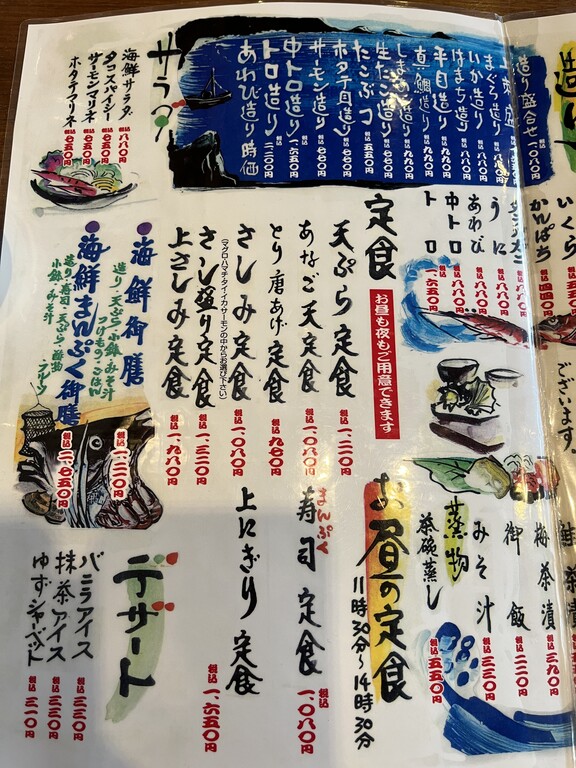 造り盛合せ 税込一、〇八〇円
まぐろ造り
いか造り
はまち造り
平目造り
真鯛造り 税込九九〇円
しまあじ造り 税込九九〇円
生だこ造り
たこぶつ 税込五五〇円
ホタテ貝造り 税込六六〇円
サーモン造り 税込六六〇円
中トロ造り 税込一、六五〇円
トロ造り 税込二、二〇〇円
あわび造り 時価
サラダ
海鮮サラダ 税込八八〇円
タコスパイシー 税込六五〇円
サーモンマリネ 税込六五〇円
ホタテマリネ 税込六五〇円
いくら
かんぱち 税込四四〇円
うに 税込八八〇円
あわび 税込八八〇円
中トロ 税込八八〇円
トロ 税込一、六五〇円
ございます。
定食
お昼も夜もご用意できます
天ぷら定食 税込一、二二〇円
あなご天定食 税込一、〇八〇円
とり唐あげ定食 税込九七〇円
さしみ定食 税込一、〇八〇円
(マグロ・ハマチ・タイ・イカ・サーモンの中からお選び下さい)
さし盛り定食 税込一、三二〇円
上さしみ定食 税込一、九八〇円
海鮮御膳
造り・天ぷら・小鉢・みそ汁
つけもの・ごはん
税込一、二二〇円
海鮮まんぷく御膳
造り・寿司・天ぷら
小鉢・みそ汁
税込二、七五〇円
鮭茶漬
梅茶漬 税込三九〇円
御飯 税込二二〇円
みそ汁 税込三三〇円
蒸物
茶碗蒸し 税込五五〇円
お昼の定食
11時30分〜14時30分
まんぷく
寿司定食 税込一、〇八〇円
上にぎり定食 税込一、六五〇円
デザート
バニラアイス 税込三三〇円
抹茶アイス 税込三三〇円
ゆずシャーベット 税込三一〇円